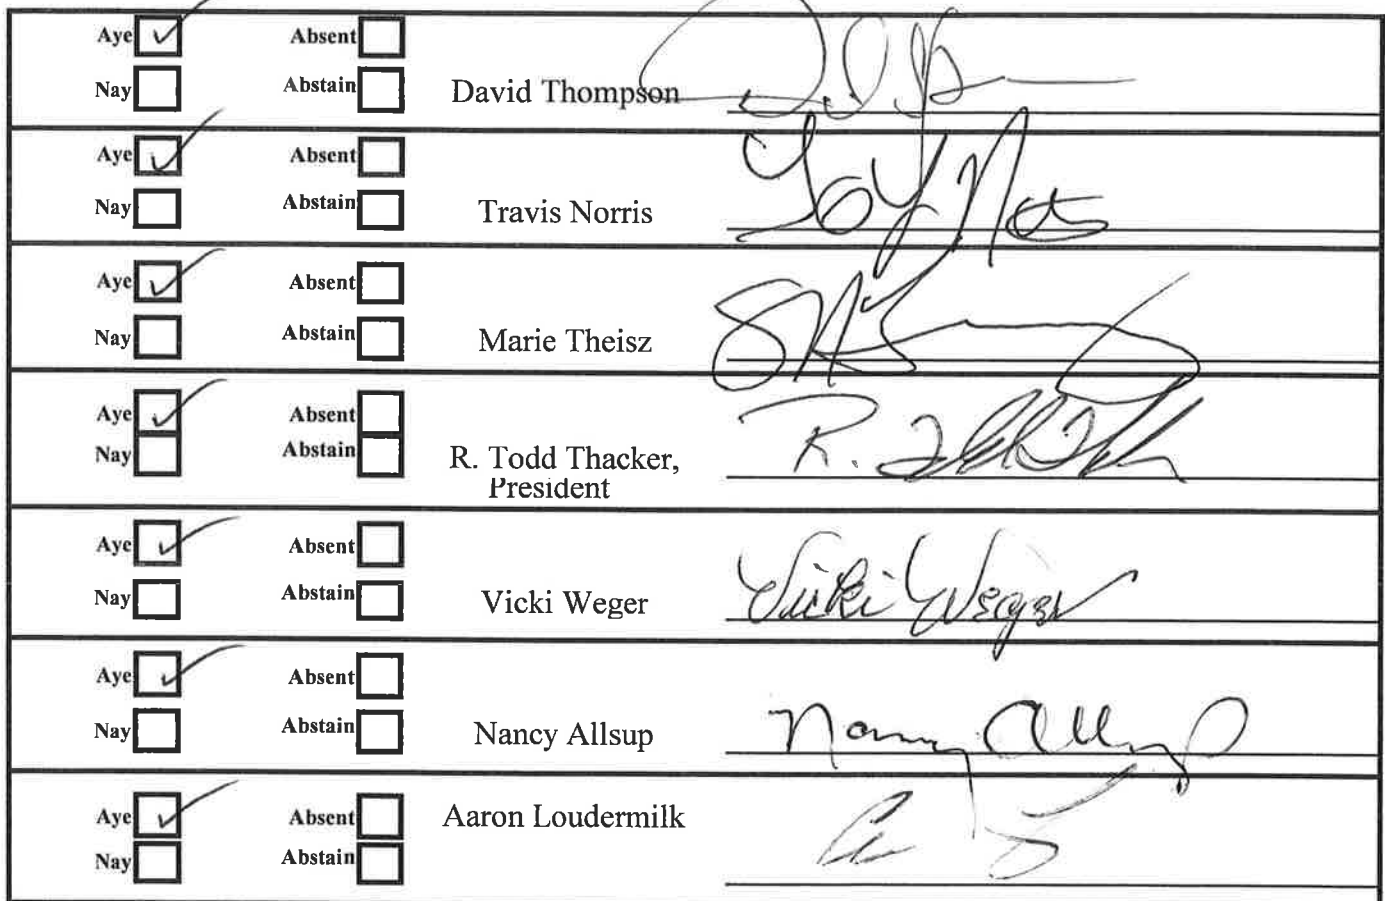 Aye Absent
Nay Abstain David Thompson
Aye Absent
Nay Abstain Travis Norris
Aye Absent
Nay Abstain Marie Theisz
Aye Absent R. Todd Thacker
Nay Abstain R. Todd Thacker,
President
Aye Absent
Nay Abstain Vicki Weger Vicki Weger
Aye Absent
Nay Abstain Nancy Allsup Nancy Allsup
Aye Absent Aaron Loudermilk
Nay Abstain